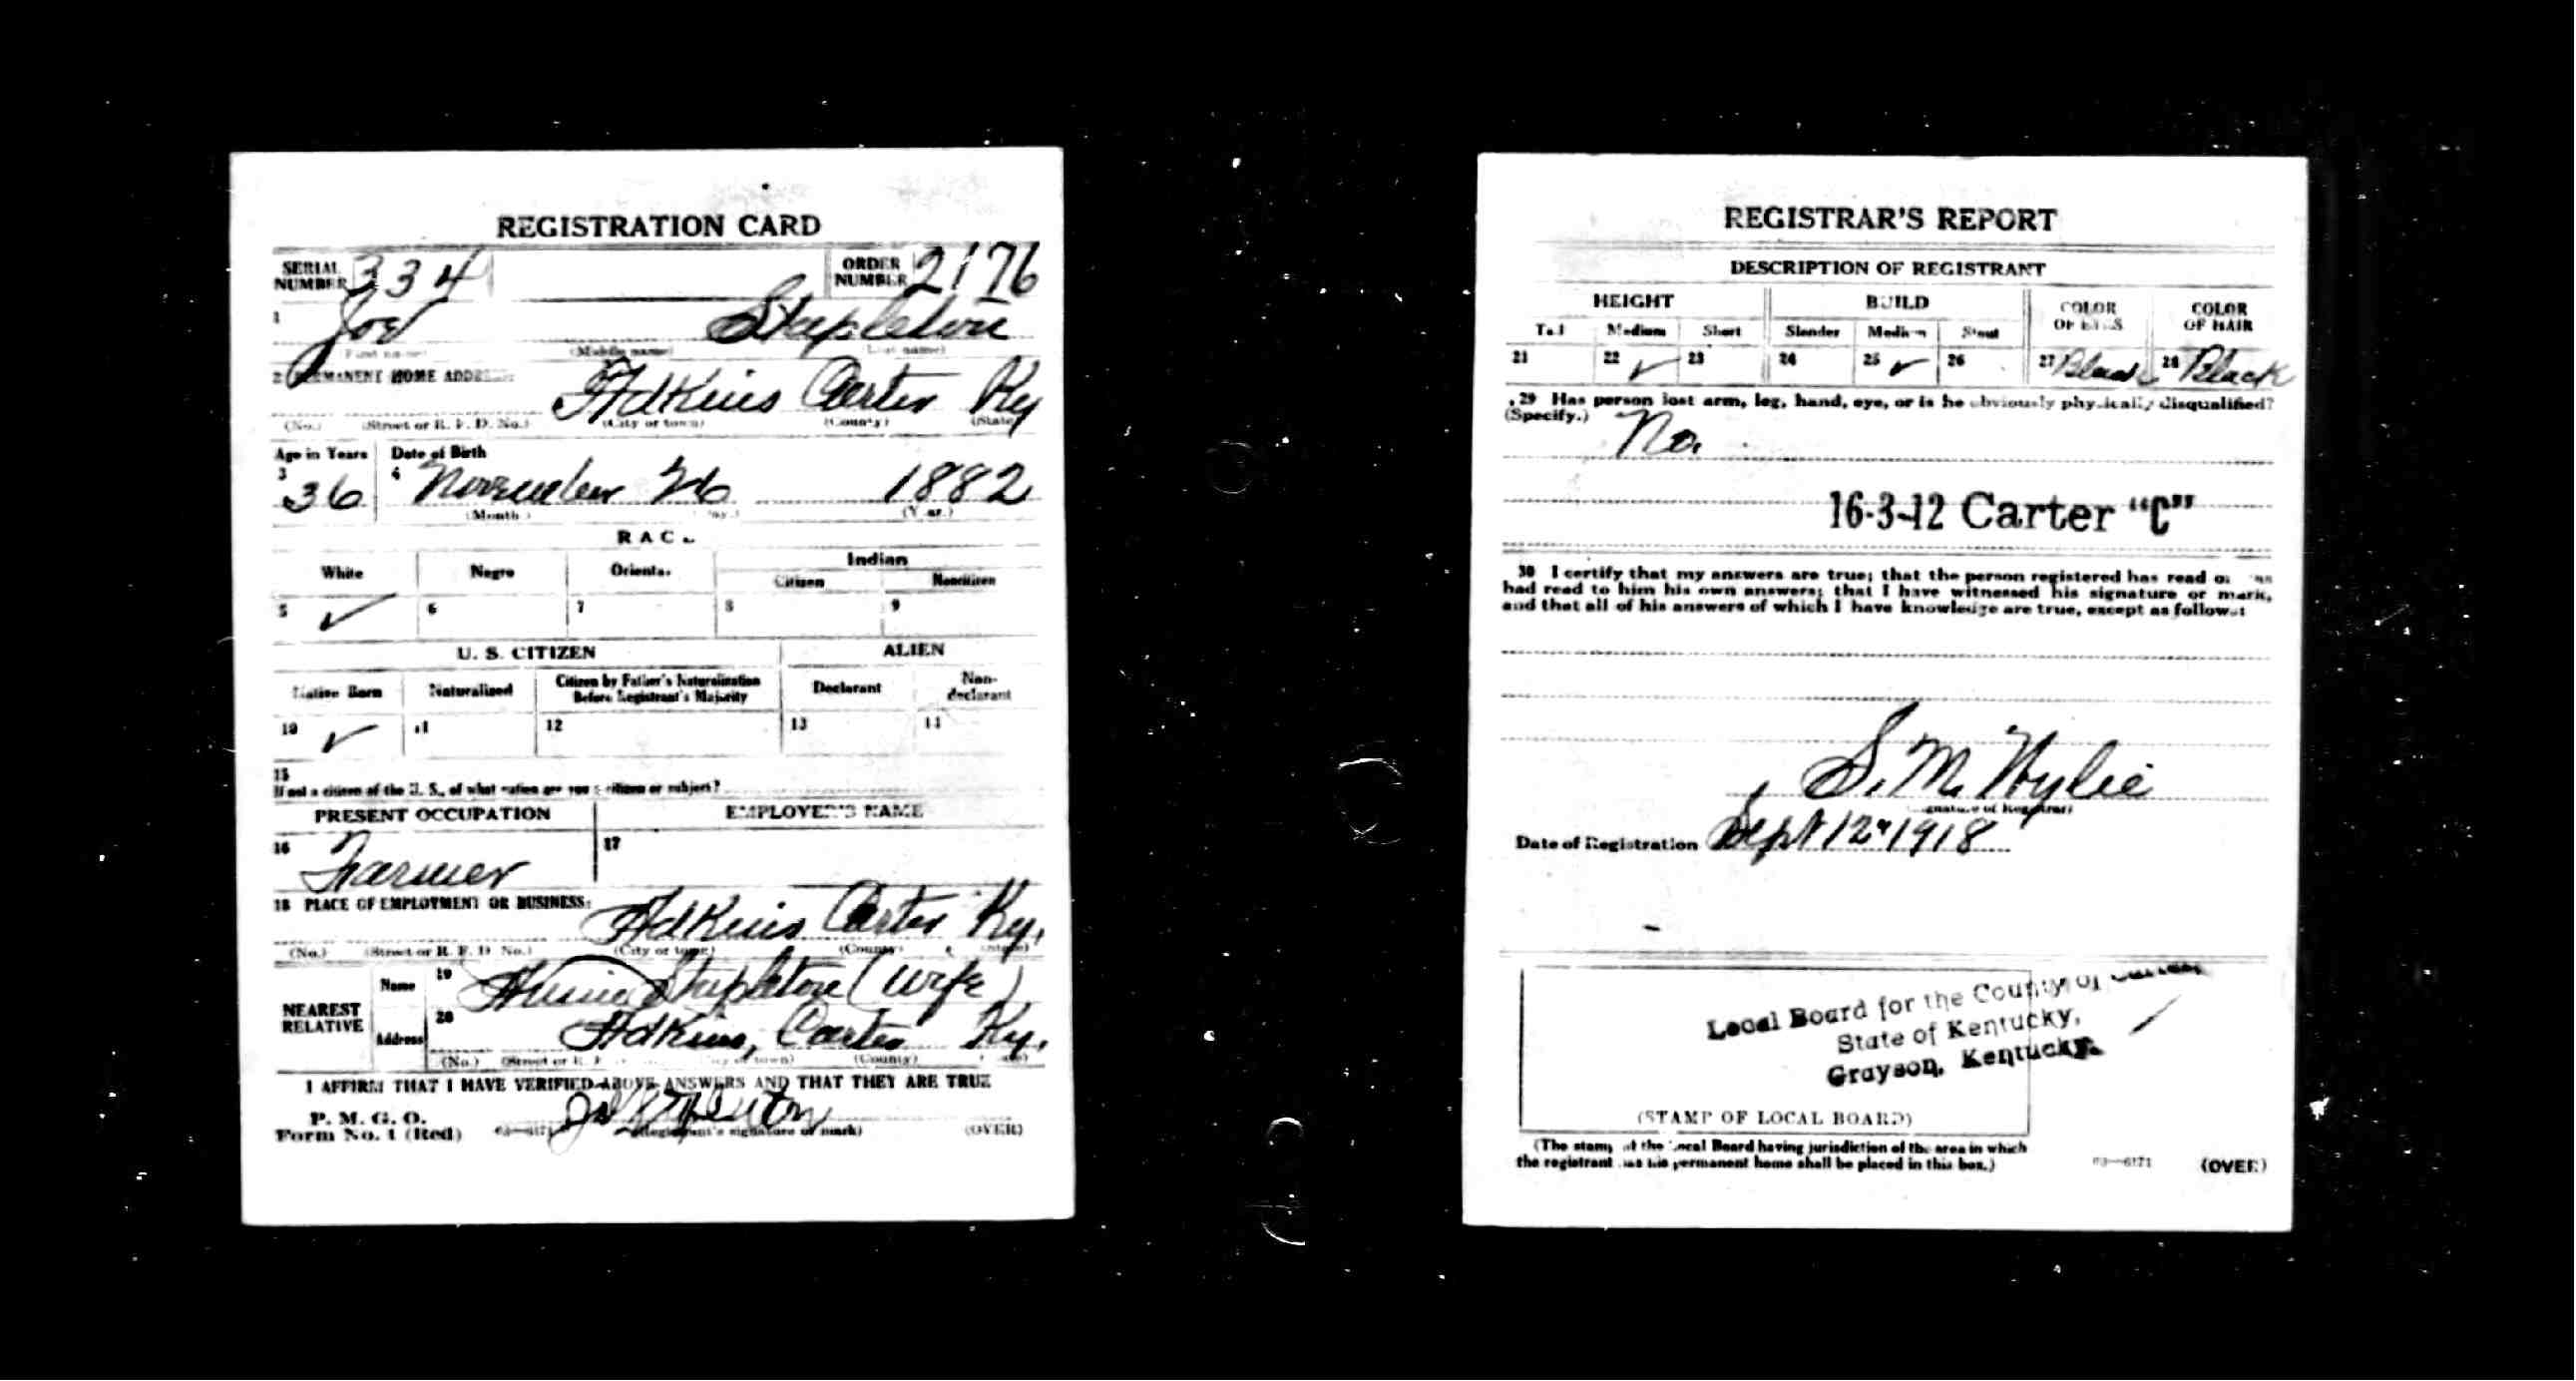 REGISTRATION CARD
SERIAL NUMBER 334 ORDER NUMBER 2176
1 Joe Stapleton
(First name) (Middle name) (Last name)
2 PERMANENT HOME ADDRESS:
Adkins Carter Ky
(No.) (Street or R. F. D. No.) (City or town) (County) (State)
Age in Years Date of Birth
3 36 4 November 26 1882
(Month.) (Day.) (Year.)
RACE
White Negro Oriental Indian
Citizen Noncitizen
5 ✓ 6 7 8 9
U. S. CITIZEN ALIEN
Native Born Naturalized Citizen by Father's Naturalization Before Registrant's Majority Declarant Non-declarant
10 ✓ 11 12 13 14
15
If not a citizen of the U. S., of what nation are you a citizen or subject?
PRESENT OCCUPATION EMPLOYER'S NAME
16 Farmer 17
18 PLACE OF EMPLOYMENT OR BUSINESS:
Adkins Carter Ky.
(No.) (Street or R. F. D. No.) (City or town) (County) (State)
NEAREST RELATIVE Name 19 Stapleton (wife)
Address 20 Adkins, Carter Ky.
(No.) (Street or R. F. (City or town) (County) (State)
I AFFIRM THAT I HAVE VERIFIED ABOVE ANSWERS AND THAT THEY ARE TRUE
P. M. G. O.
Form No. 1 (Red) 03—6171 (Registrant's signature or mark) (OVER)
REGISTRAR'S REPORT
DESCRIPTION OF REGISTRANT
HEIGHT BUILD COLOR OF EYES COLOR OF HAIR
Tall Medium Short Slender Medium Stout
21 22 ✓ 23 24 25 ✓ 26 27 Black 28 Black
29 Has person lost arm, leg, hand, eye, or is he obviously physically disqualified?
(Specify.) No.
16-3-12 Carter "C"
30 I certify that my answers are true; that the person registered has read or has
had read to him his own answers; that I have witnessed his signature or mark,
and that all of his answers of which I have knowledge are true, except as follows:
S. M. Wylie
(Signature of Registrar)
Date of Registration Sept 12" 1918
Local Board for the County of Carter,
State of Kentucky,
Grayson, Kentucky.
(STAMP OF LOCAL BOARD)
(The stamp of the Local Board having jurisdiction of the area in which
the registrant has his permanent home shall be placed in this box.)
03—6171 (OVER)